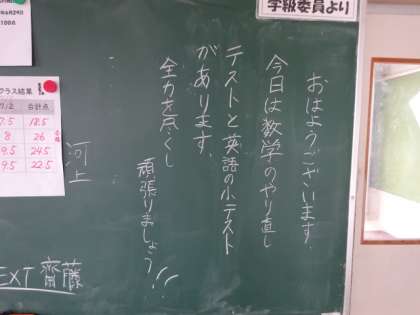 学級委員より
おはようございます.
今日は数学のやり直し
テストと英語の小テスト
があります.
全力を尽くし
頑張りましょう!!
河上
EXT 齋藤
年6月29日
100点
クラス結果
7/2 合計点
7.5 18.5
8 26
9.5 24.5
9.5 22.5